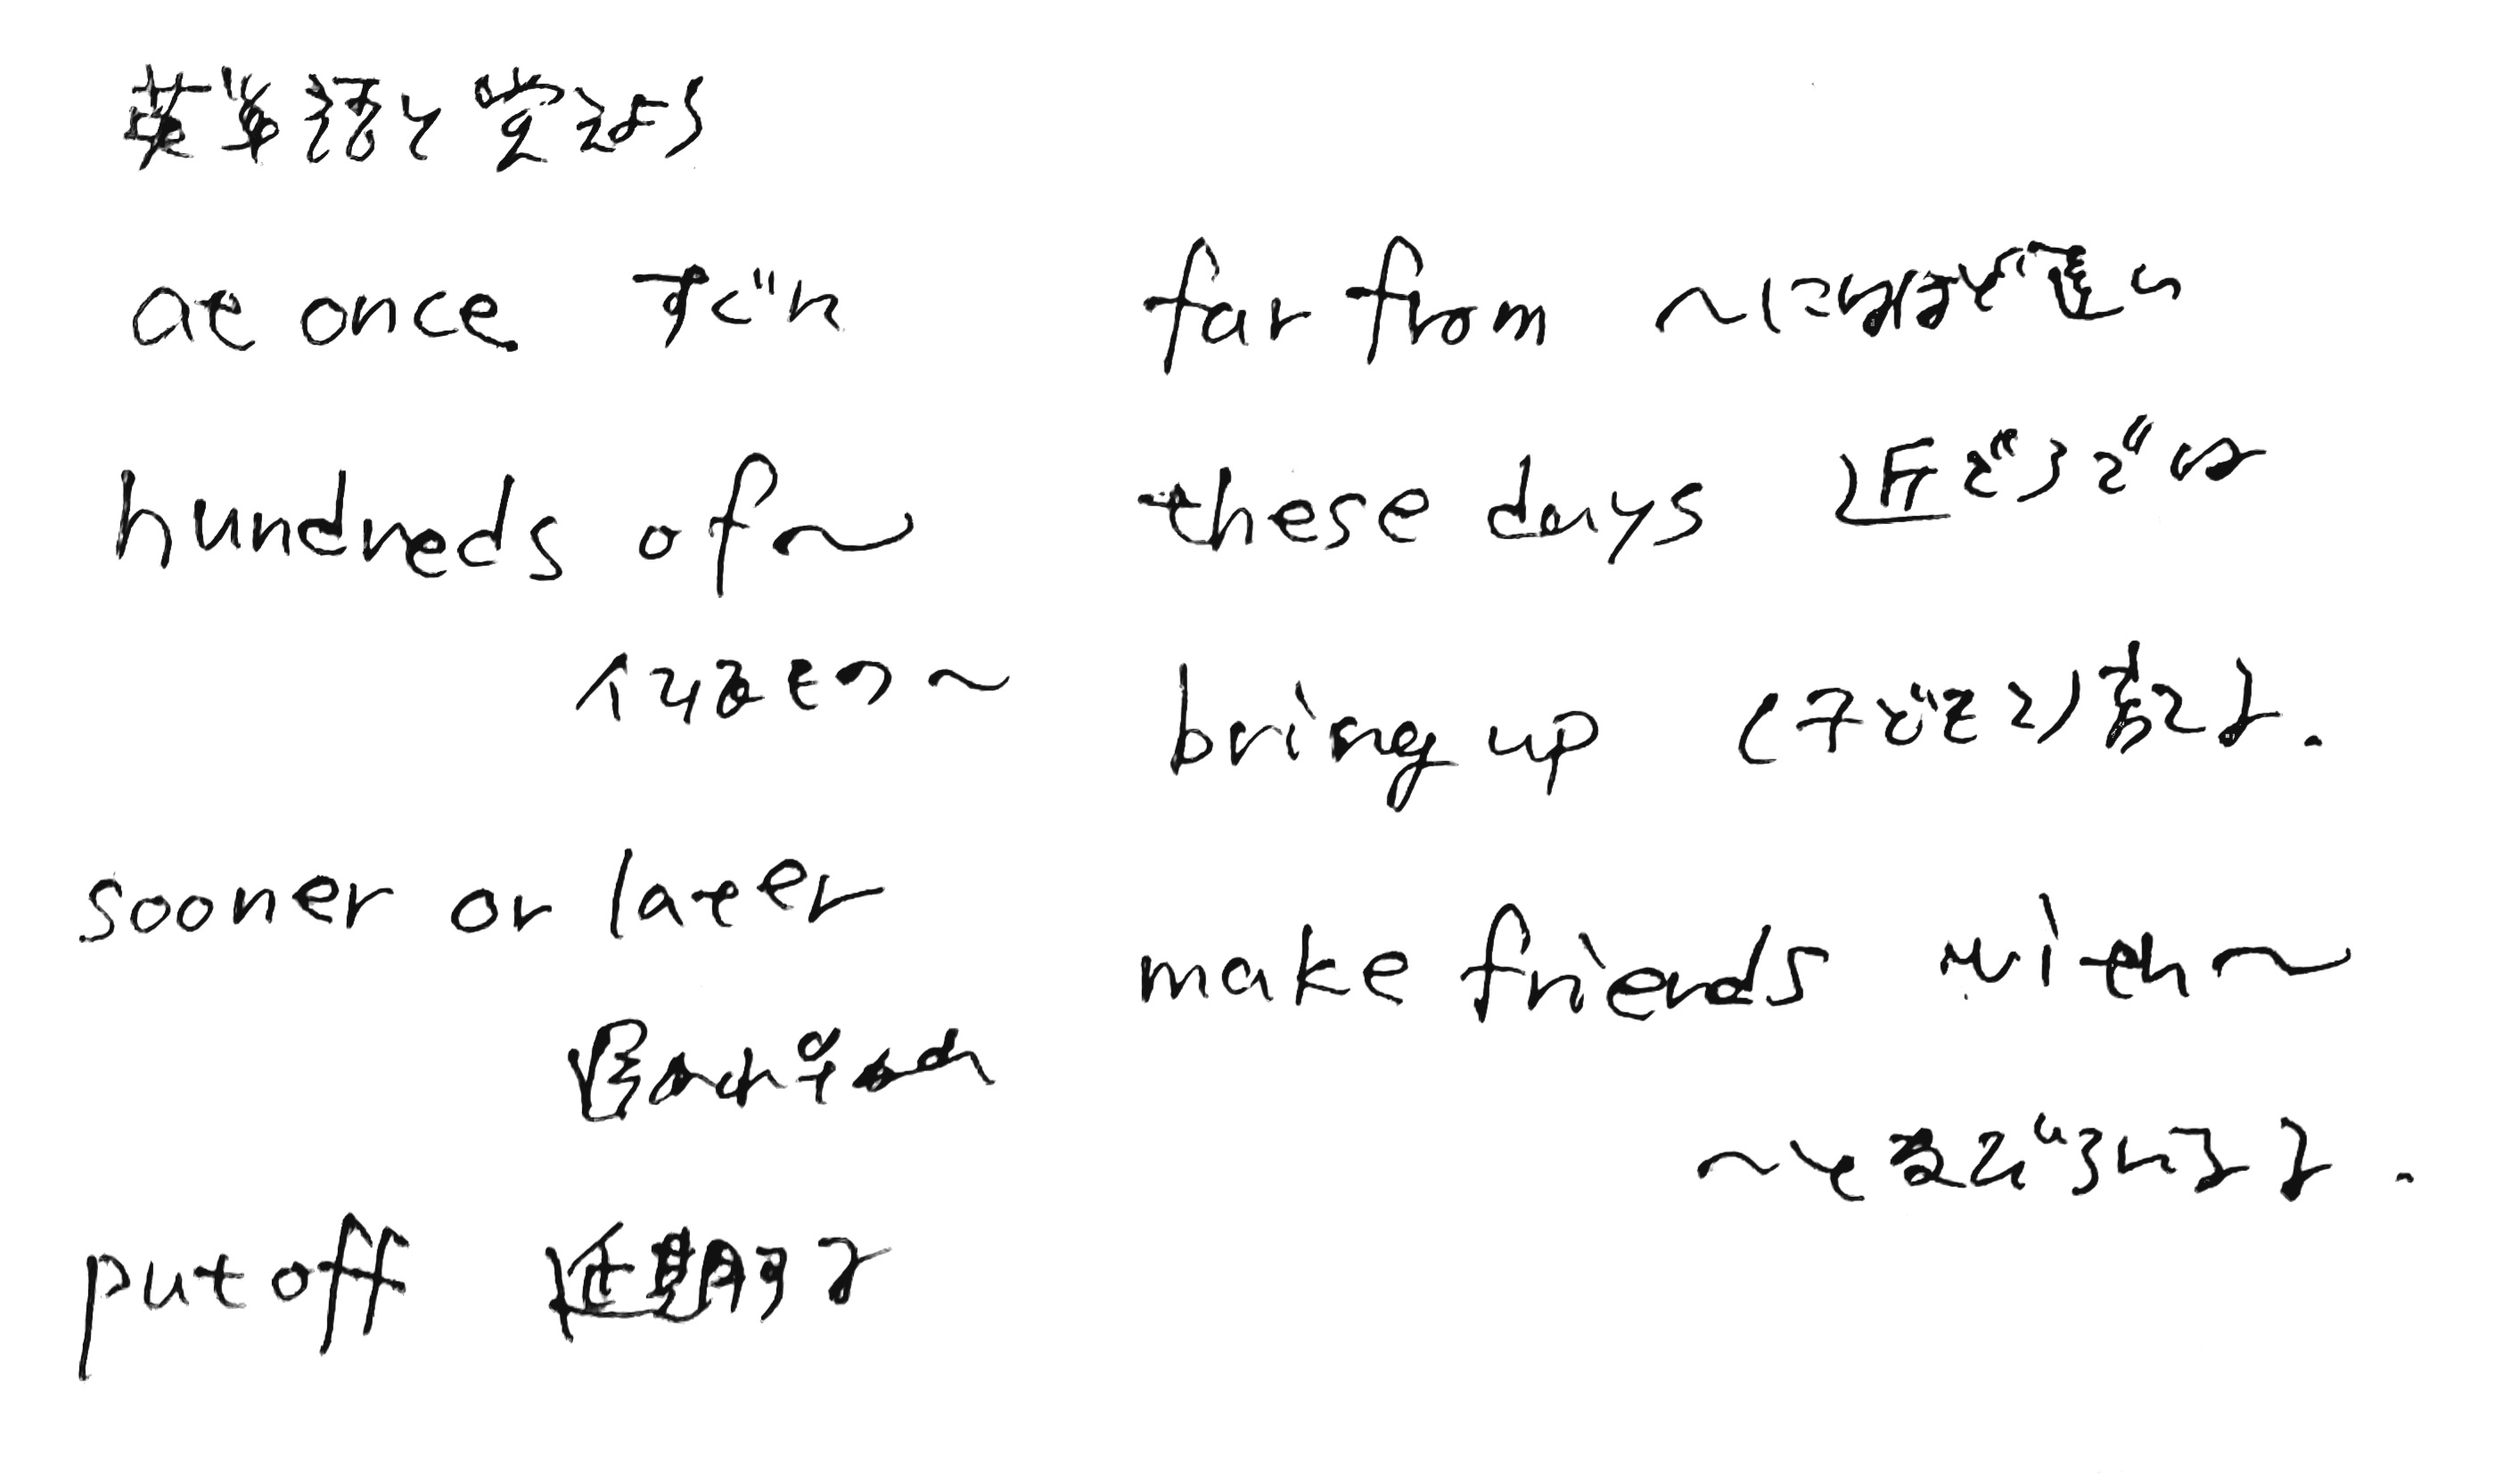 英単語を覚えよう
at once すぐに
hundreds of～
何百もの～
sooner or later
遅かれ早かれ
put off 延期する
far from ～にはほど遠い
these days 近ごろでは
bring up (子どもを)育てる.
make friends with～
～と友だちになる.